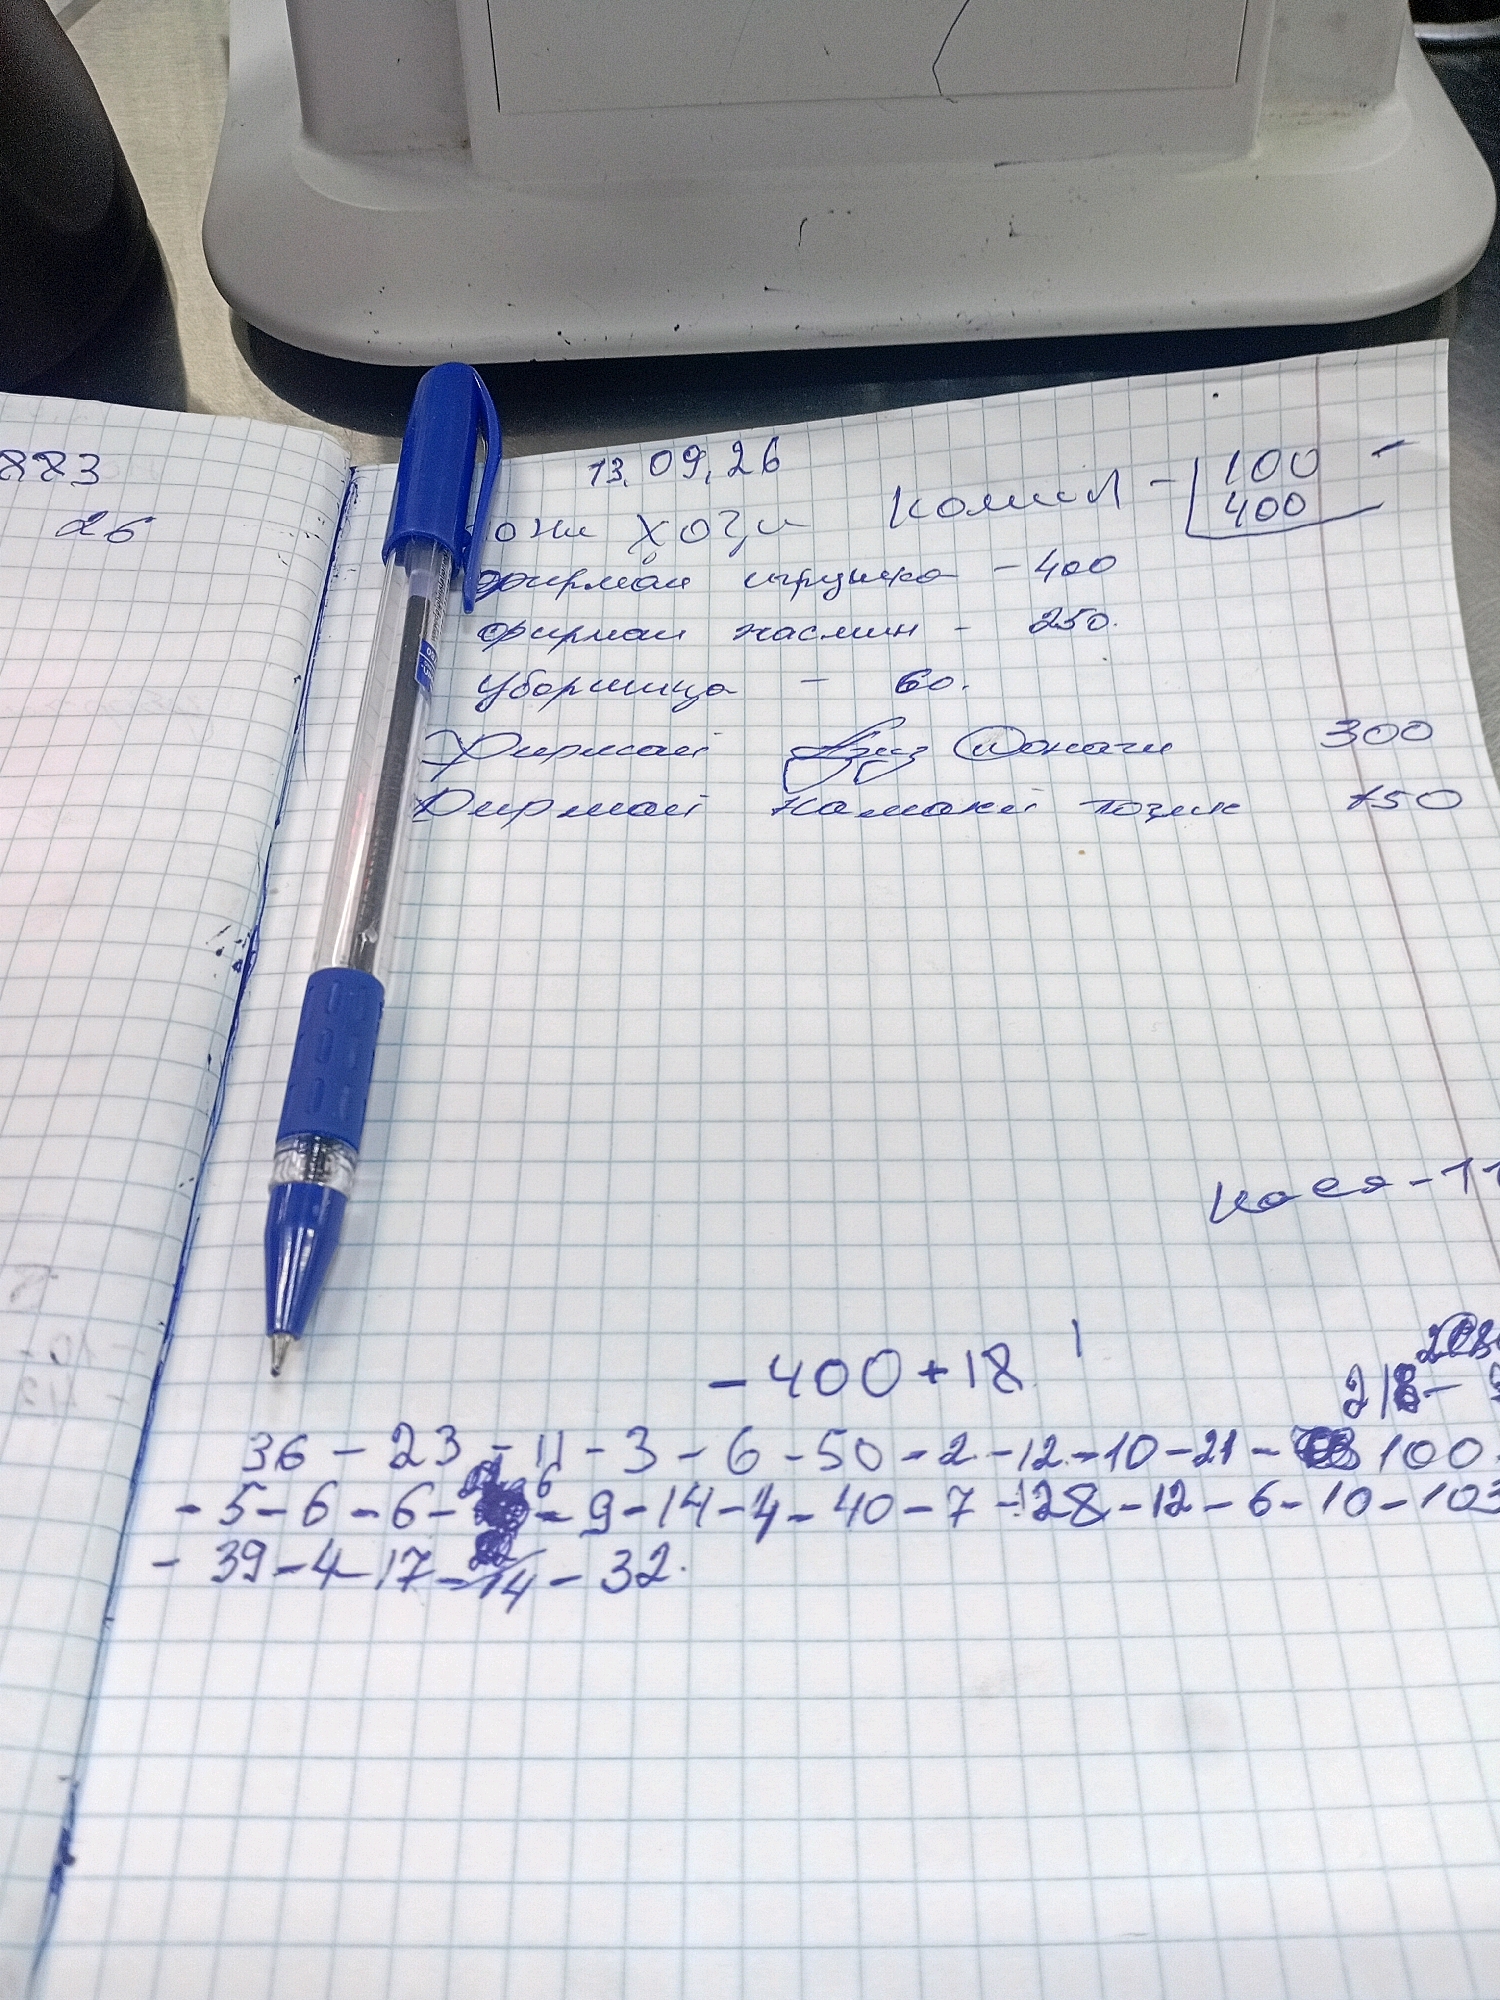 883
26
13.09.26
хоҷи Комил - 100 -
400
фирмаи игрушка - 400
фирмаи жасмин - 250.
уборшица - 60.
Фирмаи 300
Фирмаи Намаки тоҷик 150
касса - 11
- 400 + 18
218 -
36 - 23 - 11 - 3 - 6 - 50 - 2 - 12 - 10 - 21 - 100
- 5 - 6 - 6 - 6 - 9 - 14 - 4 - 40 - 7 - 128 - 12 - 6 - 10 - 103
- 39 - 4 - 17 - 14 - 32.